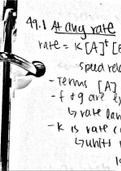 49.1 At any rate
rate = K[A]^t [B
speed rel
- Terms [A]
- f & g are e
↳ rate law
- K is rate c
↳ units